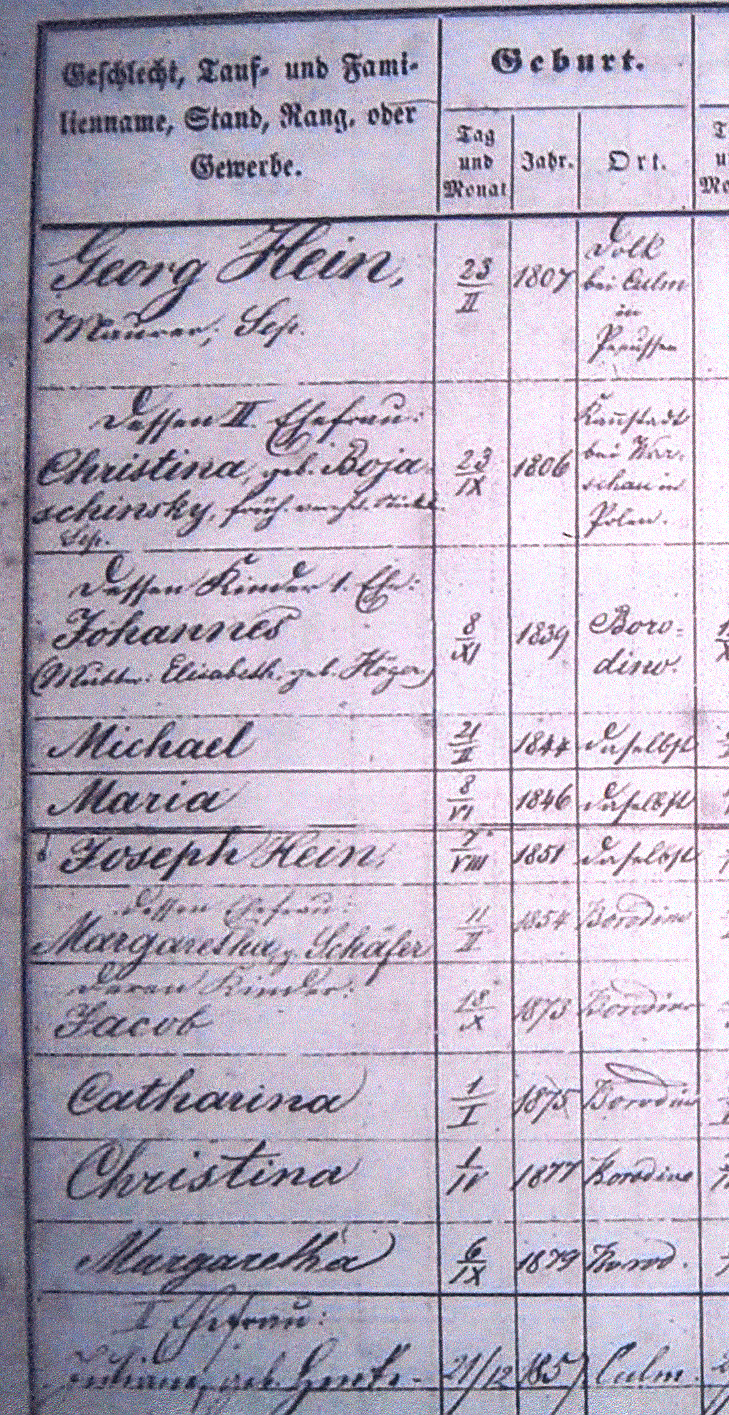 Geschlecht, Tauf- und Fami-
lienname, Stand, Rang, oder
Gewerbe.
Geburt.
Tag
und
Monat
Jahr.
Ort.
Georg Hein,
Maurer, Sep.
23/II
1807
bei Culm
in
Preussen
Dessen II Ehefrau:
Christina, geb. Boja-
schinsky, früh. verh.
Sep.
23/IX
1806
bei War-
schau in
Polen.
Dessen Kinder 1. Ehe:
Johannes
(Mutter: Elisabeth, geb. Höger)
8/XI
1839
Boro-
dino.
Michael
21/II
1844
daselbst
Maria
8/VI
1846
daselbst
Joseph Hein,
7/VIII
1851
daselbst
dessen Ehefrau:
Margaretha, g. Schäfer
11/II
1854
Borodino
deren Kinder:
Jacob
18/X
1873
Borodino
Catharina
1/I
1875
Borodino
Christina
1/IV
1877
Borodino
Margaretha
6/IX
1879
Borod.
II Ehefrau:
Juliane, geb.
21/12
1857
Culm.